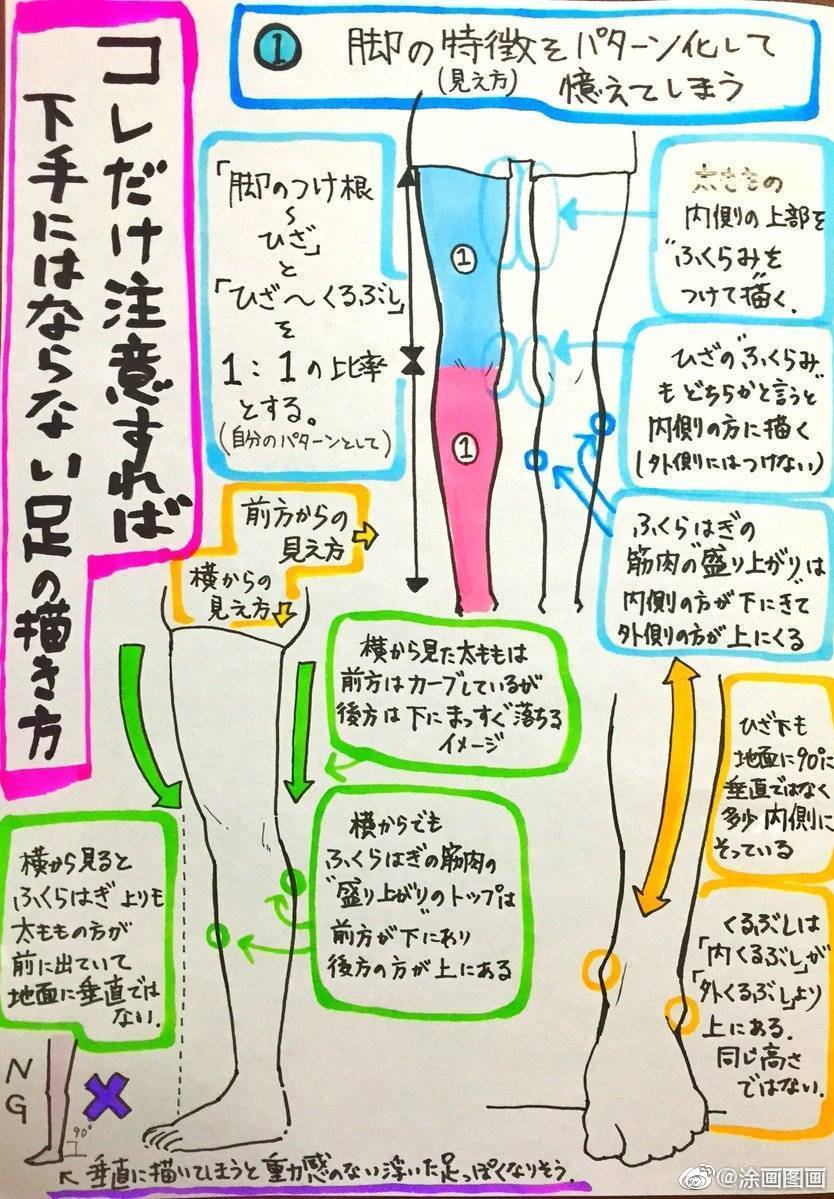 コレだけ注意すれば
下手にはならない足の描き方
① 脚の特徴をパターン化して
(見え方) 憶えてしまう
「脚のつけ根
〜
ひざ」
と
「ひざ〜くるぶし」
を
1:1の比率
とする。
(自分のパターンとして)
①
①
太ももの
内側の上部を
"ふくらみを
つけて"描く.
ひざの"ふくらみ"
もどちらかと言うと
内側の方に描く
(外側にはつけない)
ふくらはぎの
筋肉の"盛り上がり"は
内側の方が下にきて
外側の方が上にくる
前方からの
見え方
横からの
見え方
横から見た太ももは
前方はカーブしているが
後方は下にまっすぐ落ちる
イメージ
横からでも
ふくらはぎの筋肉の
"盛り上がりのトップ"は
前方が下にあり
後方の方が上にある
横から見ると
ふくらはぎよりも
太ももの方が
前に出ていて
地面に垂直では
ない.
ひざ下も
地面に90°に
垂直ではなく
多少内側に
そっている
くるぶしは
「内くるぶし」が
「外くるぶし」より
上にある.
同じ高さ
ではない.
NG
90°
↖垂直に描いてしまうと重力感のない浮いた足っぽくなりそう.
@涂画图画